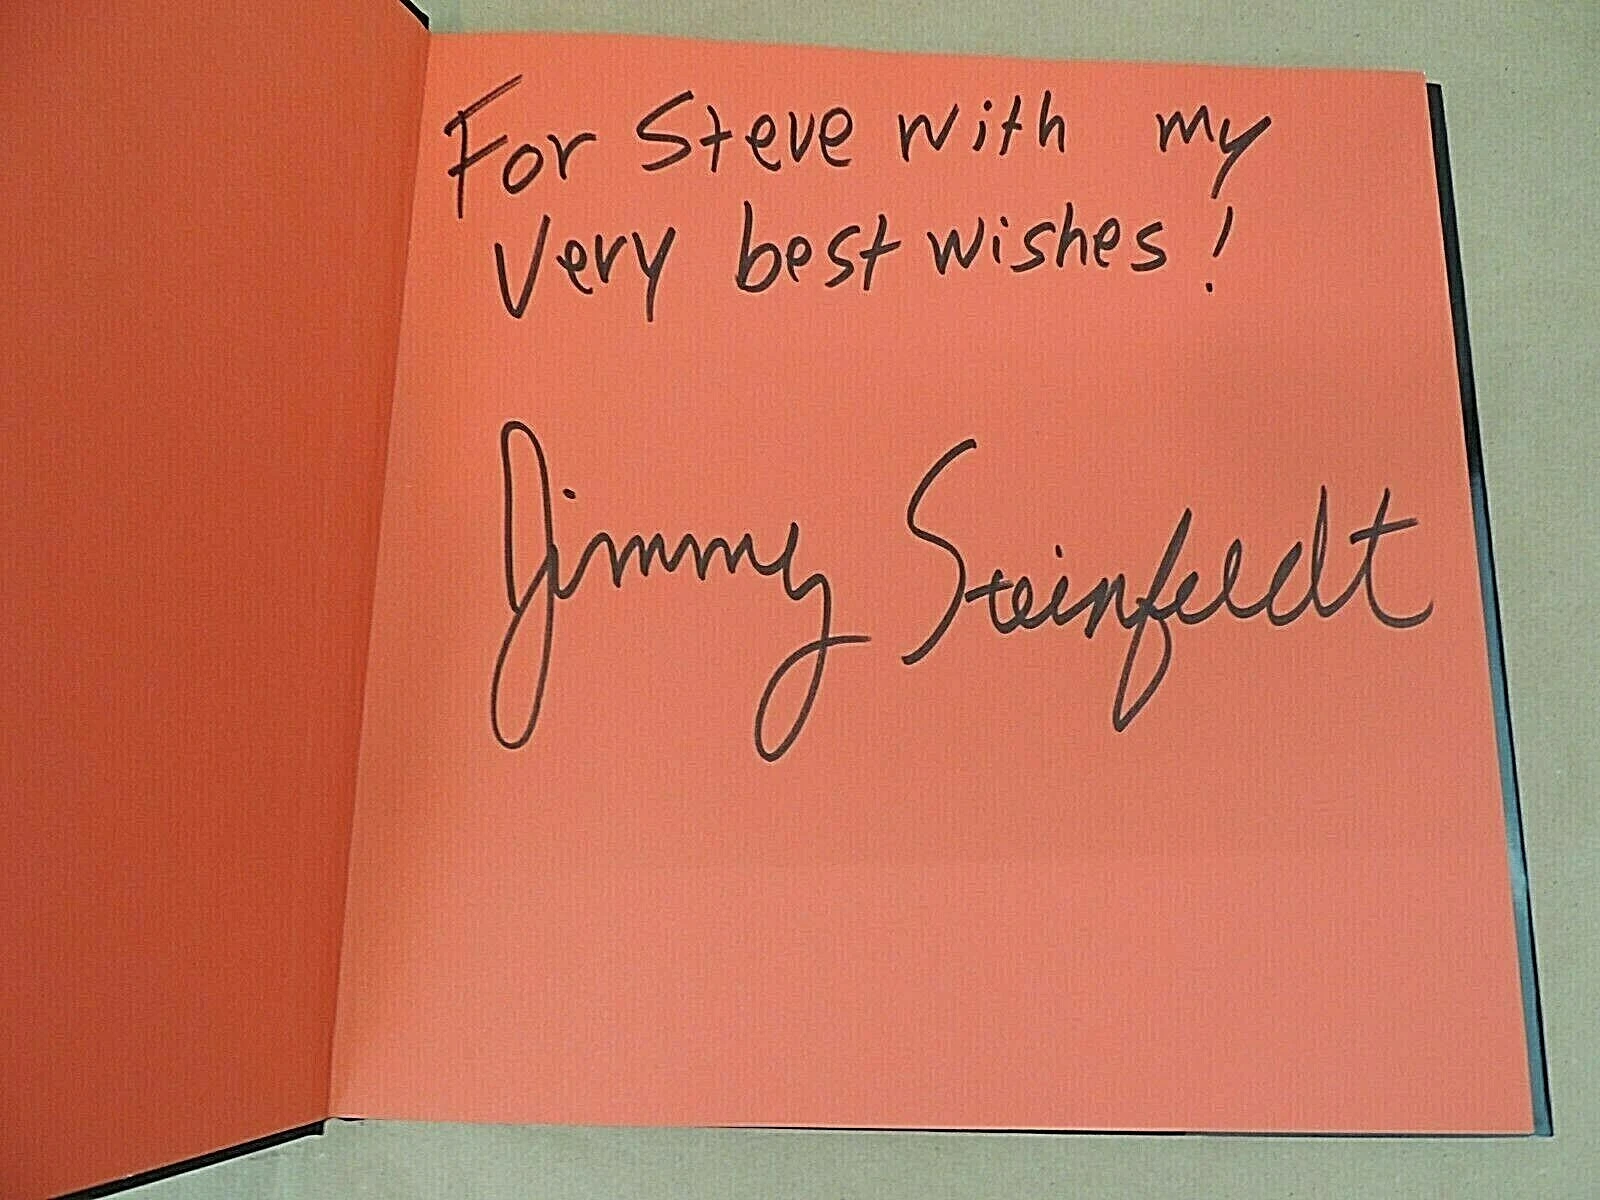 For Steve with my
very best wishes!
Jimmy Steinfeldt